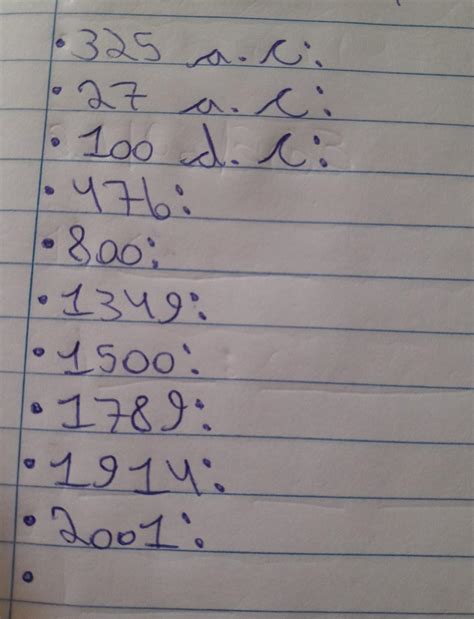 • 325 a.C:
• 27 a.C:
• 100 d.C:
• 476:
• 800:
• 1349:
• 1500:
• 1789:
• 1914:
• 2001:
•